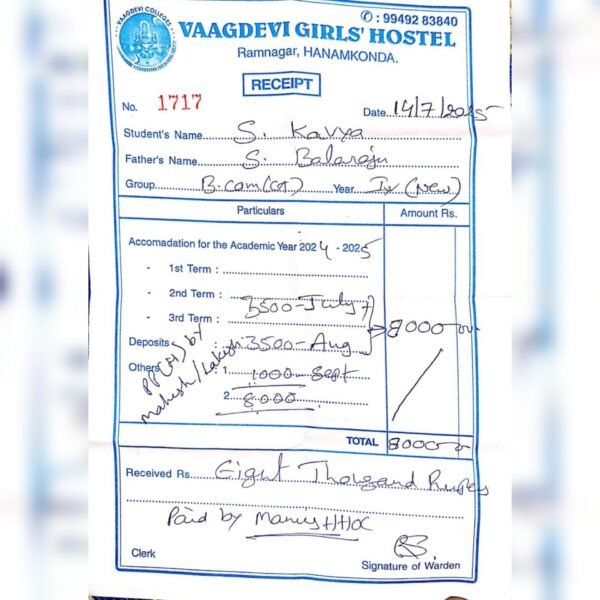 ✆ : 99492 83840
VAAGDEVI COLLEGES
VAAGDEVI GIRLS' HOSTEL
Ramnagar, HANAMKONDA.
RECEIPT
No. 1717
Date 14/7/2025
Student's Name S. Kavya
Father's Name S. Balaraju
Group B.com(CA) Year Iyr (New)
Particulars Amount Rs.
Accomadation for the Academic Year 2024 - 2025
- 1st Term :
- 2nd Term :
- 3rd Term : 3500-July
8000
Deposits : 3500-Aug
Others : 1. 1000-Sept
2. 8000
by
Mahesh/
TOTAL 8000
Received Rs. Eight Thousand Rupees
Paid by
Clerk
Signature of Warden